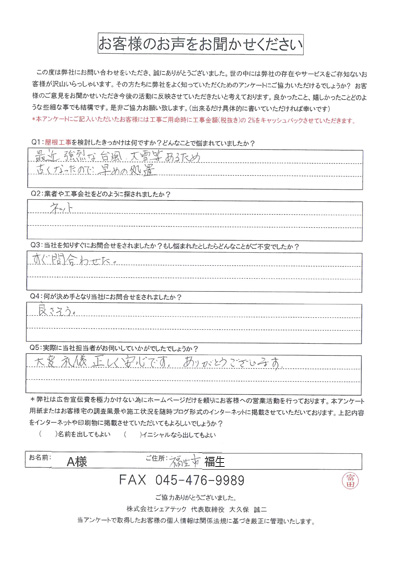 お客様のお声をお聞かせください
この度は弊社にお問い合わせをいただき、誠にありがとうございます。世の中には弊社の存在やサービスをご存知ないお
客様が沢山いらっしゃいます。その方たちに弊社をよく知っていただくためのアンケートにご協力いただけるでしょうか？ お客
様のご意見をお聞かせいただき今後の活動に反映させていただきたいと考えております。良かったこと、嬉しかったことどのよ
うな些細な事でも結構です。是非ご協力お願い致します。（出来るだけ具体的に書いていただければ幸いです）
*本アンケートにご記入いただいたお客様には工事ご用命時に工事金額(税抜き)の 2%をキャッシュバックさせていただきます。
Q1：屋根工事を検討したきっかけは何ですか？どんなことで悩まれていましたか？
最近 強烈な台風 大雪等あるため
古くなったので 早めの処置
Q2：業者や工事会社をどのように探されましたか？
ネット
Q3：当社を知りすぐにお問合せをされましたか？もし悩まれたとしたらどんなことがご不安でしたか？
すぐ問合わせた。
Q4：何が決め手となり当社にお問合せをされましたか？
良さそう。
Q5：実際に当社担当者がお伺いしていかがでしたでしょうか？
大変 礼儀正しく 安心です。ありがとうございます。
＊弊社は広告宣伝費を極力かけない為にホームページだけを頼りにお客様への営業活動を行っております。本アンケート
用紙またはお客様宅の調査風景や施工状況を随時ブログ形式のインターネットに掲載させていただいております。上記内容
をインターネットや印刷物に掲載させていただいてもよろしいでしょうか？
（ ）名前を出してもよい （ ）イニシャルなら出してもよい
お名前： A様 ご住所： 福生市 福生
FAX 045-476-9989
富田
ご協力ありがとうございました。
株式会社シェアテック 代表取締役 大久保 誠二
当アンケートで取得したお客様の個人情報は関係法規に基づき厳正に管理いたします。